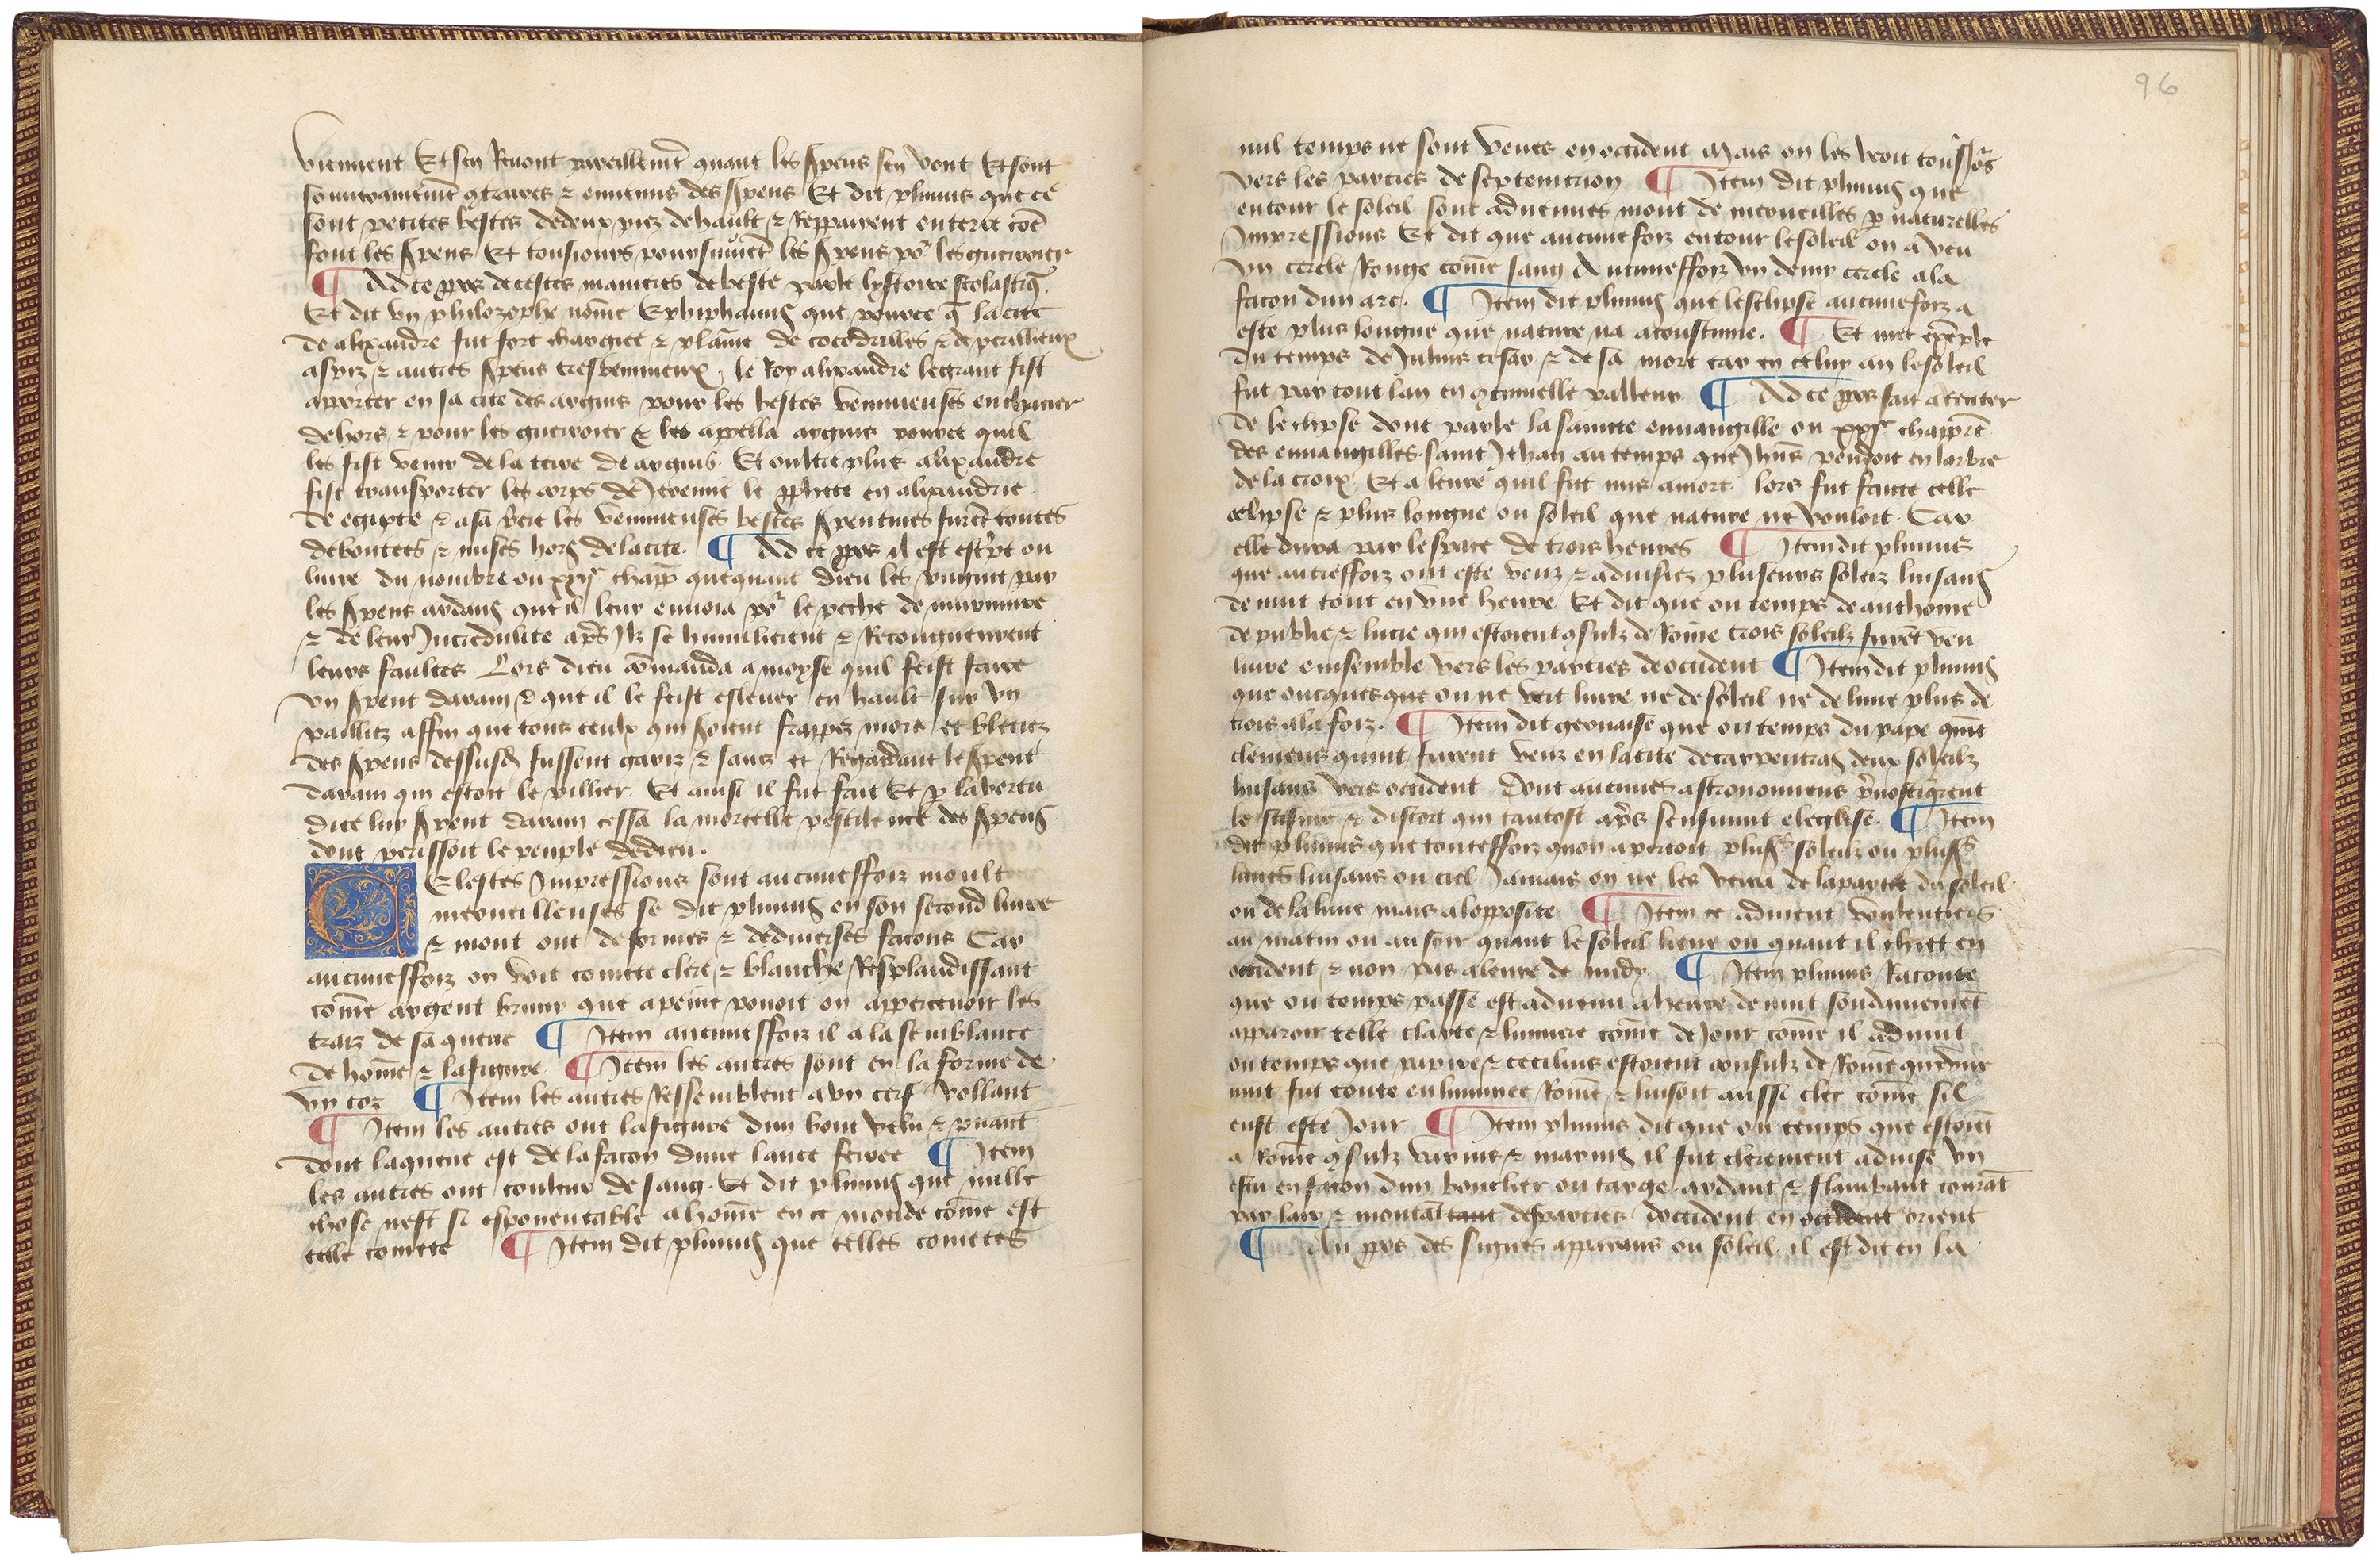 viennent Et sen Revont pareillemēt quant les spens sen vont Et sont
souverainemēt ꝯtraires ⁊ ennemis des spens Et dit plinius que ce
sont petites bestes dedeux piez dehault ⁊ Repparent enterre cōē
font les spens Et tousiours poursuivēt les spens poʳ les guerroier
¶ Ad ce ppos decestes manieres de beste parle lystoire scolastiq̄.
Et dit vn philozophe nōme Ephiphanius que pource q̄ la cite
de alixandre fut fort chargiee ⁊ plaīne de cocodrilles ⁊ de perillieux
aspiz ⁊ autres spens tresvenimeux, le Roy alixandre legrant fist
aporter en sa cite des argins pour les bestes venimeuses enchacier
dehors ⁊ pour les guerroier ⁊ les appella argins pource quil
les fist venir de la terre de argins. Et oultre plus alixandre
fist transporter les corps de Jeremie le pphete en alixandrie
de egipte ⁊ a sa p̄iere les venimeuses bestes spentines furēt toutes
deboutees ⁊ mises hors delacite. ¶ Ad ce ppos il est escpt ou
livre du nombre ou xxjᵉ chapp̄ que quant dieu les pugnit par
les spens ardans que il leur envoia poʳ le peche de murmure
⁊ de leur Incredulite aps̄ Ilz se humilierent ⁊ Recongneurent
leurs faultes. Lors dieu cōmanda a moyse quil feist faire
vn spent darain ⁊ que il le feist eslever en hault sur vn
paillitz affin que tous ceulx qui soient frappez mors et bleciez
des spens dessusd̄ fussent gariz ⁊ sauz et Regardant le spent
darain qui estoit le pillier. Et ainsi il fut fait Et p la vertu
dicelluy spent darain cessa la mortelle pestilence des spens
dont perissoit le peuple dedieu.
Celestes Impressions sont aucuneffoiz moult
merveilleuses se dit plinius en son second livre
⁊ mont ont de formes ⁊ dediverses facons Car
aucuneffoiz on voit comete clere ⁊ blanche Resplandissant
cōme argent bruny que apeine povoit on appercevoir les
traiz de sa queue ¶ Item aucuneffoiz il a la semblance
de hōme ⁊ lafigure ¶ Item les autres sont en la forme de
vn cor ¶ Item les autres Ressemblent a vn cerf vollant
¶ Item les autres ont lafigure dun bouc velu ⁊ puant
dont laqueue est de la facon dune lance ferree ¶ Item
les autres ont couleur de sang. Et dit plinius que nulle
chose nest si espoventable a hōme en ce monde cōme est
telle comete ¶ Item dit plinius que telles cometes
96
nul temps ne sont venes en occident Mais on les veoit tousioʳs
vers les parties de septentrion ¶ Item dit plinius que
entour le soleil sont advenues mont de merveilles p naturelles
Impressions Et dit que aucunefoiz entour lesoleil on a veu
vn cercle Rouge cōme sang Aucuneffoiz vn demy cercle ala
facon dun arc. ¶ Item dit plinius que leclipse aucunefoiz a
este plus longue que nature na acoustume. ¶ Et met exēple
du temps de Julius cesar ⁊ de sa mort car en celuy an lesoleil
fut par tout lan en ꝯtinuelle palleur ¶ Ad ce ppos fait acenter
de leclipse dont parle la saincte euvangille ou xxjᵉ chappitrē
des euvangilles. saint Jehan au temps que Jhūs pendoit en larbre
de la croix Et a leure quil fut mis amort. lors fut faicte celle
eclipse ⁊ plus longue ou soleil que nature ne vouloit. Car
elle dura par lespace de trois heures ¶ Item dit plinius
que autreffoiz ont este veuz ⁊ advisiez pluseurs soleiz luisans
de nuit tout en vne heure Et dit que ou temps de anthoine
de publie ⁊ lucie qui estoient ꝯsulz de Rome trois soleilz furēt veu
luire emsemble vers les parties deoccident ¶ Item dit plinius
que oncques que on ne veit luire ne de soleil ne de lune plus de
trois ala foiz. ¶ Item dit gervaise que ou temps du pape quīt
clemens quint furent veuz en la cite decarpentras deux soleilz
luisans vers occident dont aucunes astronomiens p̄nostiqrent
le scisme ⁊ discort qui tantost aps̄ sensuivit eleglise. ¶ Item
dit plinius que touteffoiz quon apercoit pluss̄ soleilz ou pluss̄
lunes luisans ou ciel Jamais on ne les verra de lapartie du soleil
ou de la lune mais alopposite ¶ Item ce advient voulentiers
au matin ou au soir quant le soleil lieve ou quant il chiet en
occident ⁊ non pas aleure de midy. ¶ Item plinius Raconte
que ou temps passe est advenu aheure de nuit soudainemēt
apparoir telle clarte ⁊ lumiere cōme de Jour cōme il advint
ou temps que papire ⁊ cecilius estoient consulz de Rome quedune
nuit fut toute enluminee Rome ⁊ luisoit aussi cler cōme sil
eust este Jour ¶ Item plinius dit que ou temps que estoiēt
a Rōme ꝯsulz varine ⁊ marius il fut clerement advise vn
escu en facon dun boucher ou targe ardant ⁊ flambant courāt
par lair ⁊ montāt tant desparties doccident en occident orient
¶ Au ppos des signes apparans ou soleil. il est dit en la